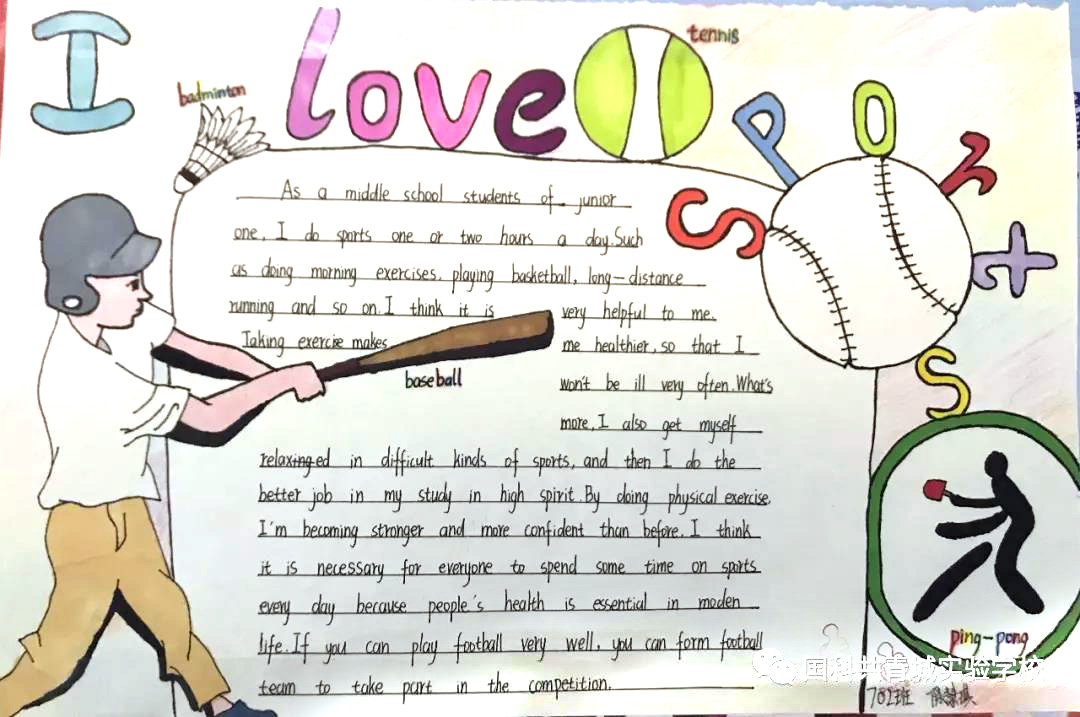 I love Sports
tennis
badminton
As a middle school students of junior
one, I do sports one or two hours a day. Such
as doing morning exercises, playing basketball, long-distance
running and so on. I think it is very helpful to me.
Taking exercise makes me healthier, so that I
won't be ill very often. What's
baseball
more, I also get myself
relaxinged in difficult kinds of sports, and then I do the
better job in my study in high spirit. By doing physical exercise,
I'm becoming stronger and more confident than before. I think
it is necessary for everyone to spend some time on sports
every day because people's health is essential in moden
life. If you can play football very well, you can form football
team to take part in the competition.
ping-pong
国科共青城实验学校
702班